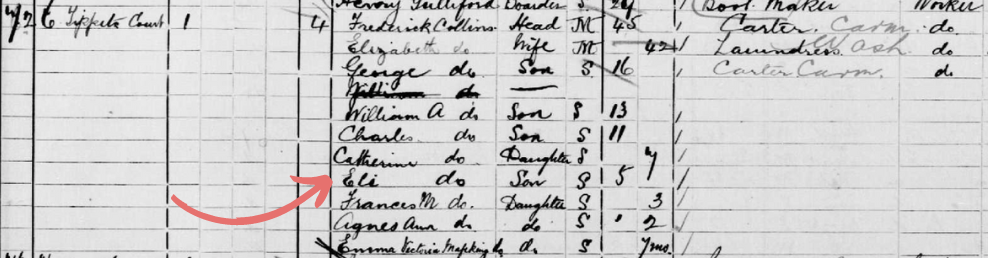 Henry Gulliford Boarder S 24 / Boot Maker Worker
72 6 Tippets Court 1 4 Frederick Collins Head M 45 / Carter Carm. do.
Elizabeth do Wife M 42 / Laundress Wash do
George do Son S 16 / Carter Carm. do
William do
William A do Son S 13 /
Charles do Son S 11 /
Catherine do Daughter S 7 /
Eli do Son S 5 /
Frances M do. Daughter S 3 /
Agnes Ann do do S 2 /
Emma Victoria Mafeking do do. S 7ms.